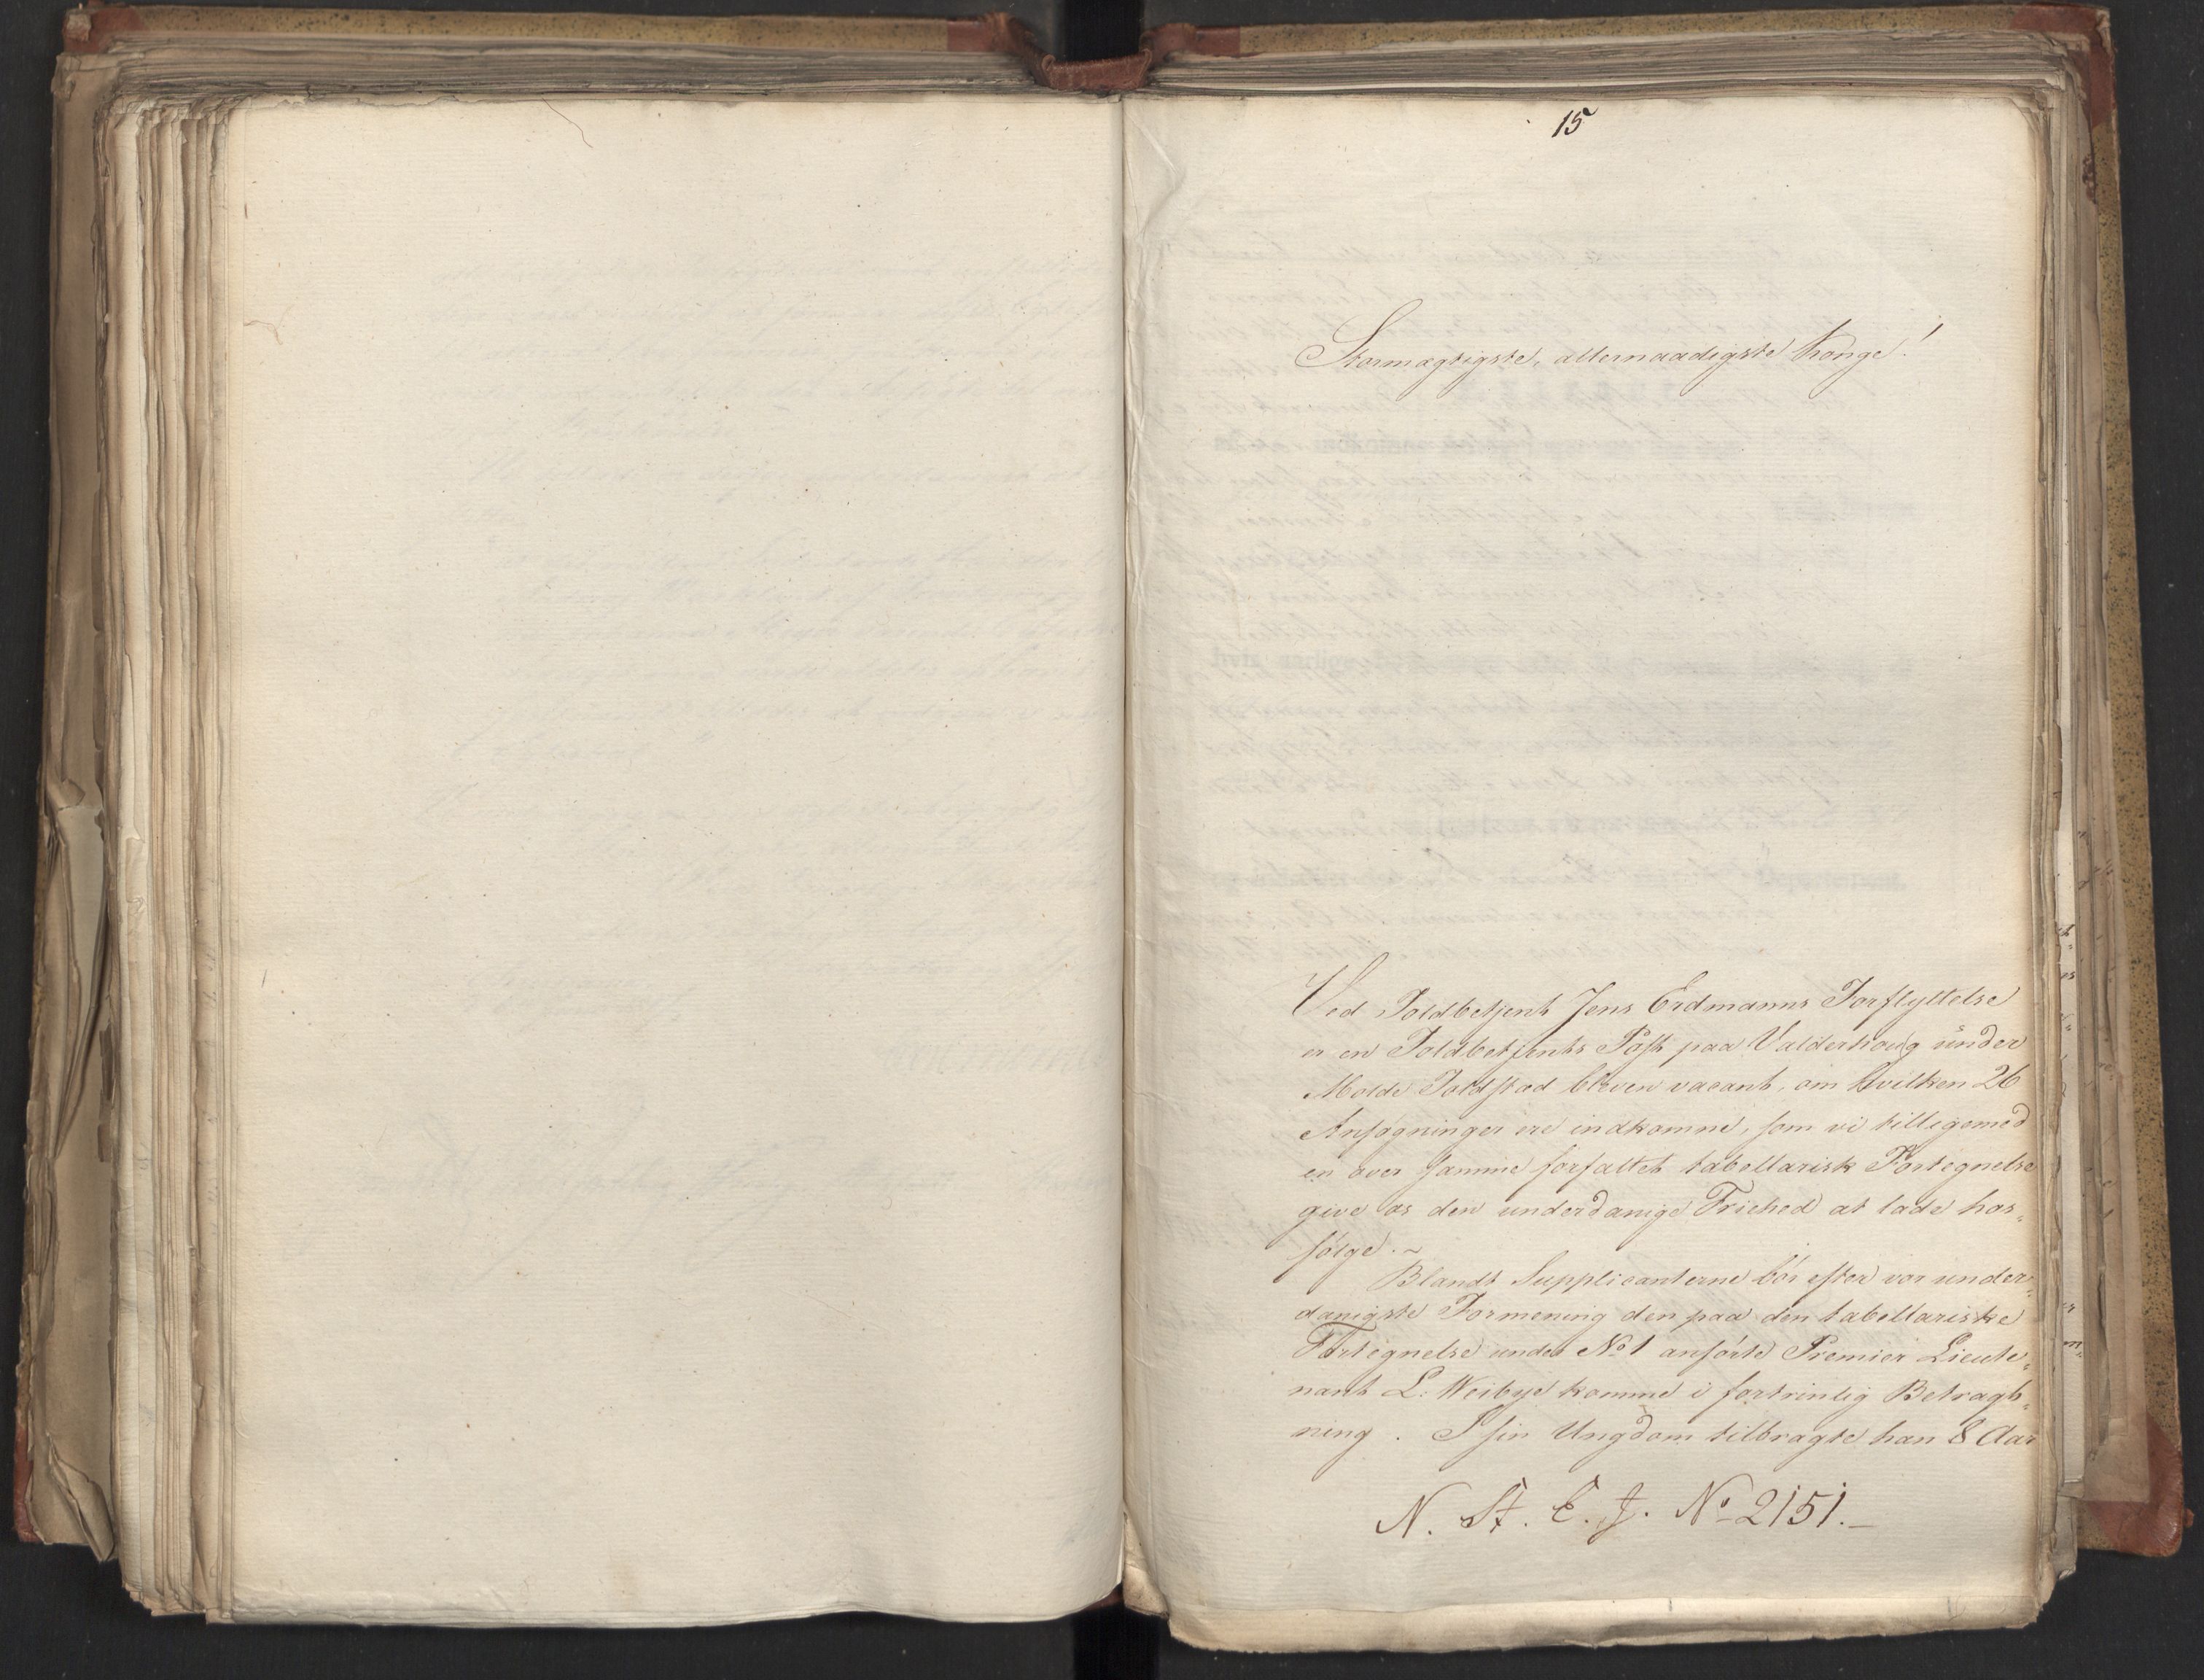 15
Stormægtigste, allernaadigste Konge!
Ved Toldbetjent Jens Erdmanns Forflyttelse
er en Toldbetjents Post paa Valderhoug under
Molde Toldsted bleven vacant, om hvilken 26
Ansøgninger ere indkomne, som vi tilligemed
en over samme forfattet tabellarisk Fortegnelse
give os den underdanige Friehed at lade hos„
følge.~
Blandt Supplicanterne bør efter vor under„
danigste Formening den paa den tabellariske
Fortegnelse under No 1 anførte Premier Lieute„
nant L. Weibye komme i fortrinlig Betragt„
ning. I sin Ungdom tilbragte han 8 Aar
N. St. E. J. No 2151.–